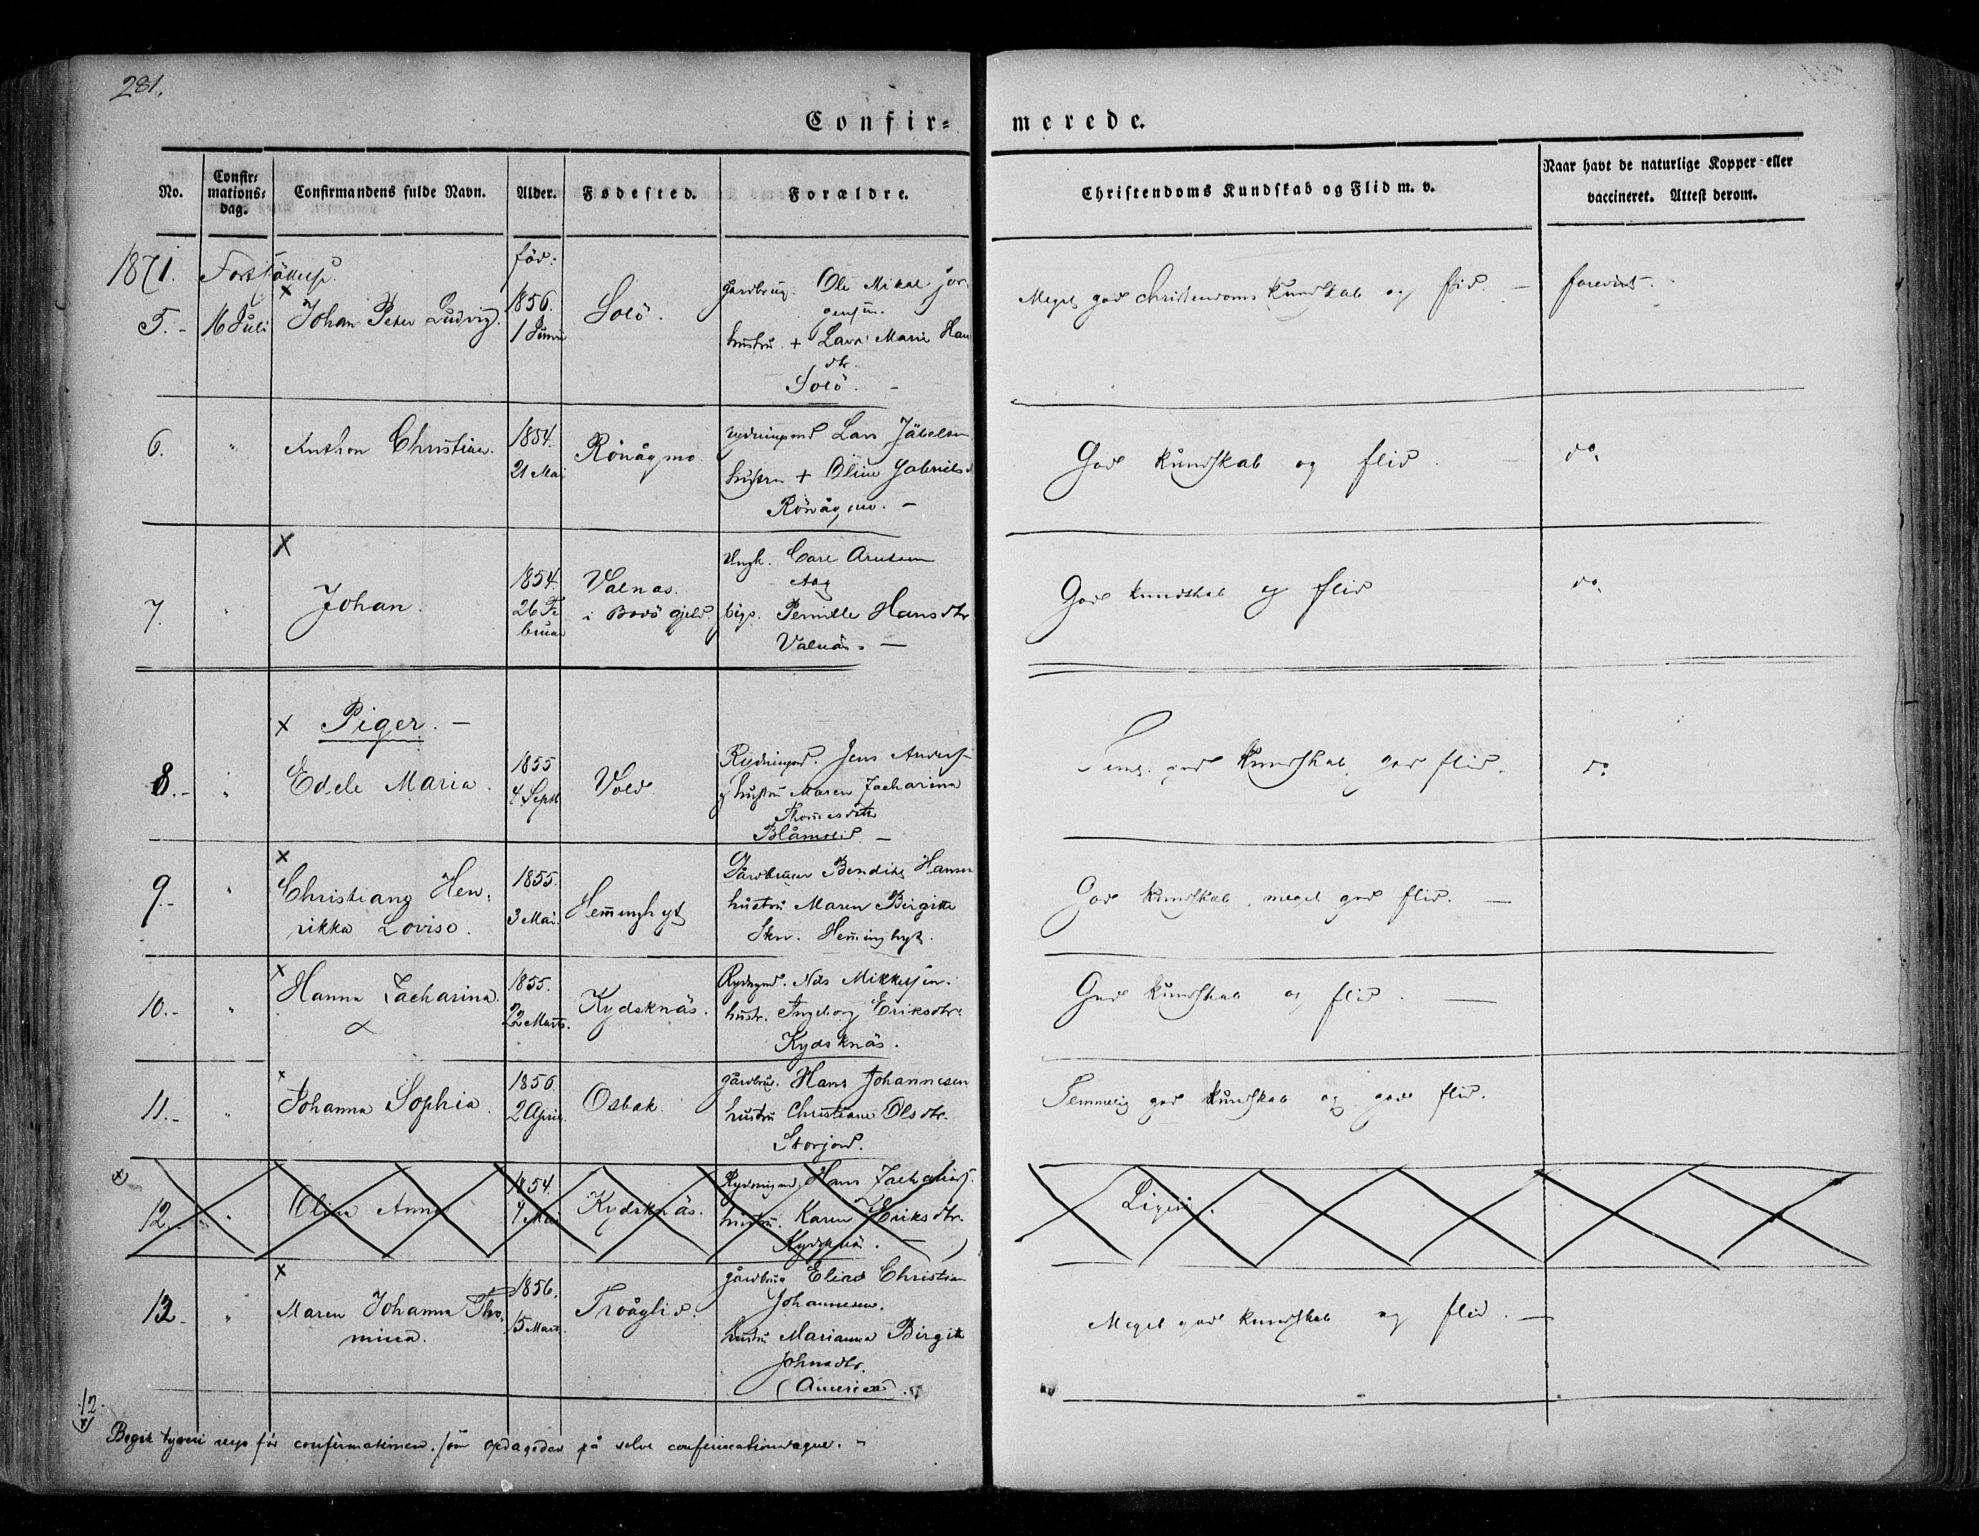 281.
Confir- merede.
No. Confir- mations- dag. Confirmandens fulde Navn. Alder. Fødested. Forældre. Christendoms Kundskab og Flid m. v. Naar havt de naturlige Kopper eller vaccineret. Attest derom.
1871. föd:
5.- 16 Juli Johan Peter Ludvig. 1856. 1 Juni Solö. gaardbrug. Ole Mikal Jör-
gensen.
hustru + Marie Han
dtr.
Meget god Christendoms Kundskab og flid. —
6. " Anthon Christian. 1854. 21 Mai Rönågmo Lars
hustru + Oline Gabriels
Rönågmo. —
God kundskab og flid. do.
7. " Johan. 1854. 26 Fe bruar Valnæs. i Bodö gjeld. Ungk. Carl Arntsen
pige. Pernille Hansdtr
Valnäs. —
God kundskab og flid do.
Piger. —
8.- " Edele Maria. 1855 4 Septb Vold Jens Anders
og hustru Maren Zacharina
Thomesdtr
god kundskab, god flid. do
9.- " Christiang Hen-
rikka Lovise. 1855. 3 Mai. Hemminghyt Gardbruger Bendik Hansen
hustru Maren Birgitte
Hemminghyt.
God kundskab, meget god flid. —
10.- " Hanna Zacharina. 1855. 22 Marts. Kydsknäs. Nils Mikkelsen.
hustr. Ingeborg Eriksdtr.
Kydsknäs.
God kundskab og flid. —
11.- " Johanna Sophia. 1856. 2 April. Osbak. gårdbrug. Hans Johannesen
hustru Christiane Olsdtr.
Storjord.
Temmelig god kundskab og god flid.
12. " Olina Anna 1854. Mai Kydsknäs. Hans Zacharias.
hustru. Karen Eriksdtr.
Kydsknäs. —
13.- " Maren Johanna Tho-
mine. 1856. 15 Marts. Troåglid. gårdbrug Elias Christian
Johannesen.
hustru Marianna Birgitte
Johnsdtr.
(America).
Meget god kundskab og flid. —
12.
Begik tyveri confirmationen, som opdagedes på selve confirmationsdagen. —